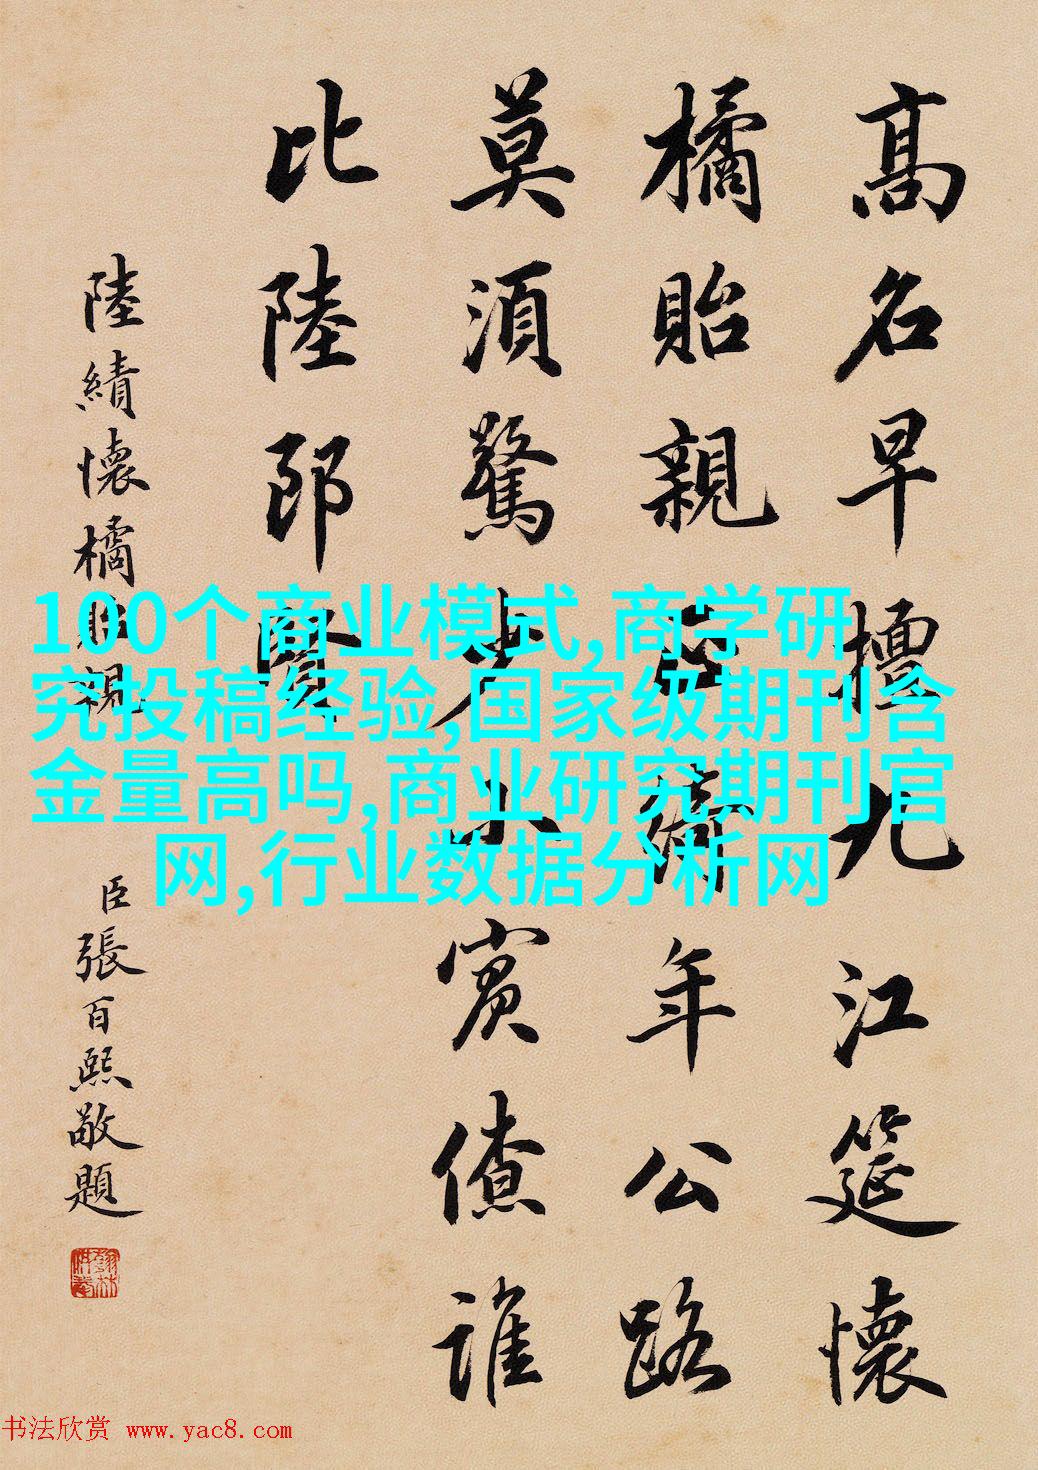 高名早擅九江筵懷
橘貽親年公路
莫須驚少小賓僚誰
比陸郎賢
陸績懷橘貽親
臣張百熙敬題
100个商业模式,商学研
究投稿经验,国家级期刊含
金量高吗,商业研究期刊官
网,行业数据分析网
书法欣赏 www.yac8.com